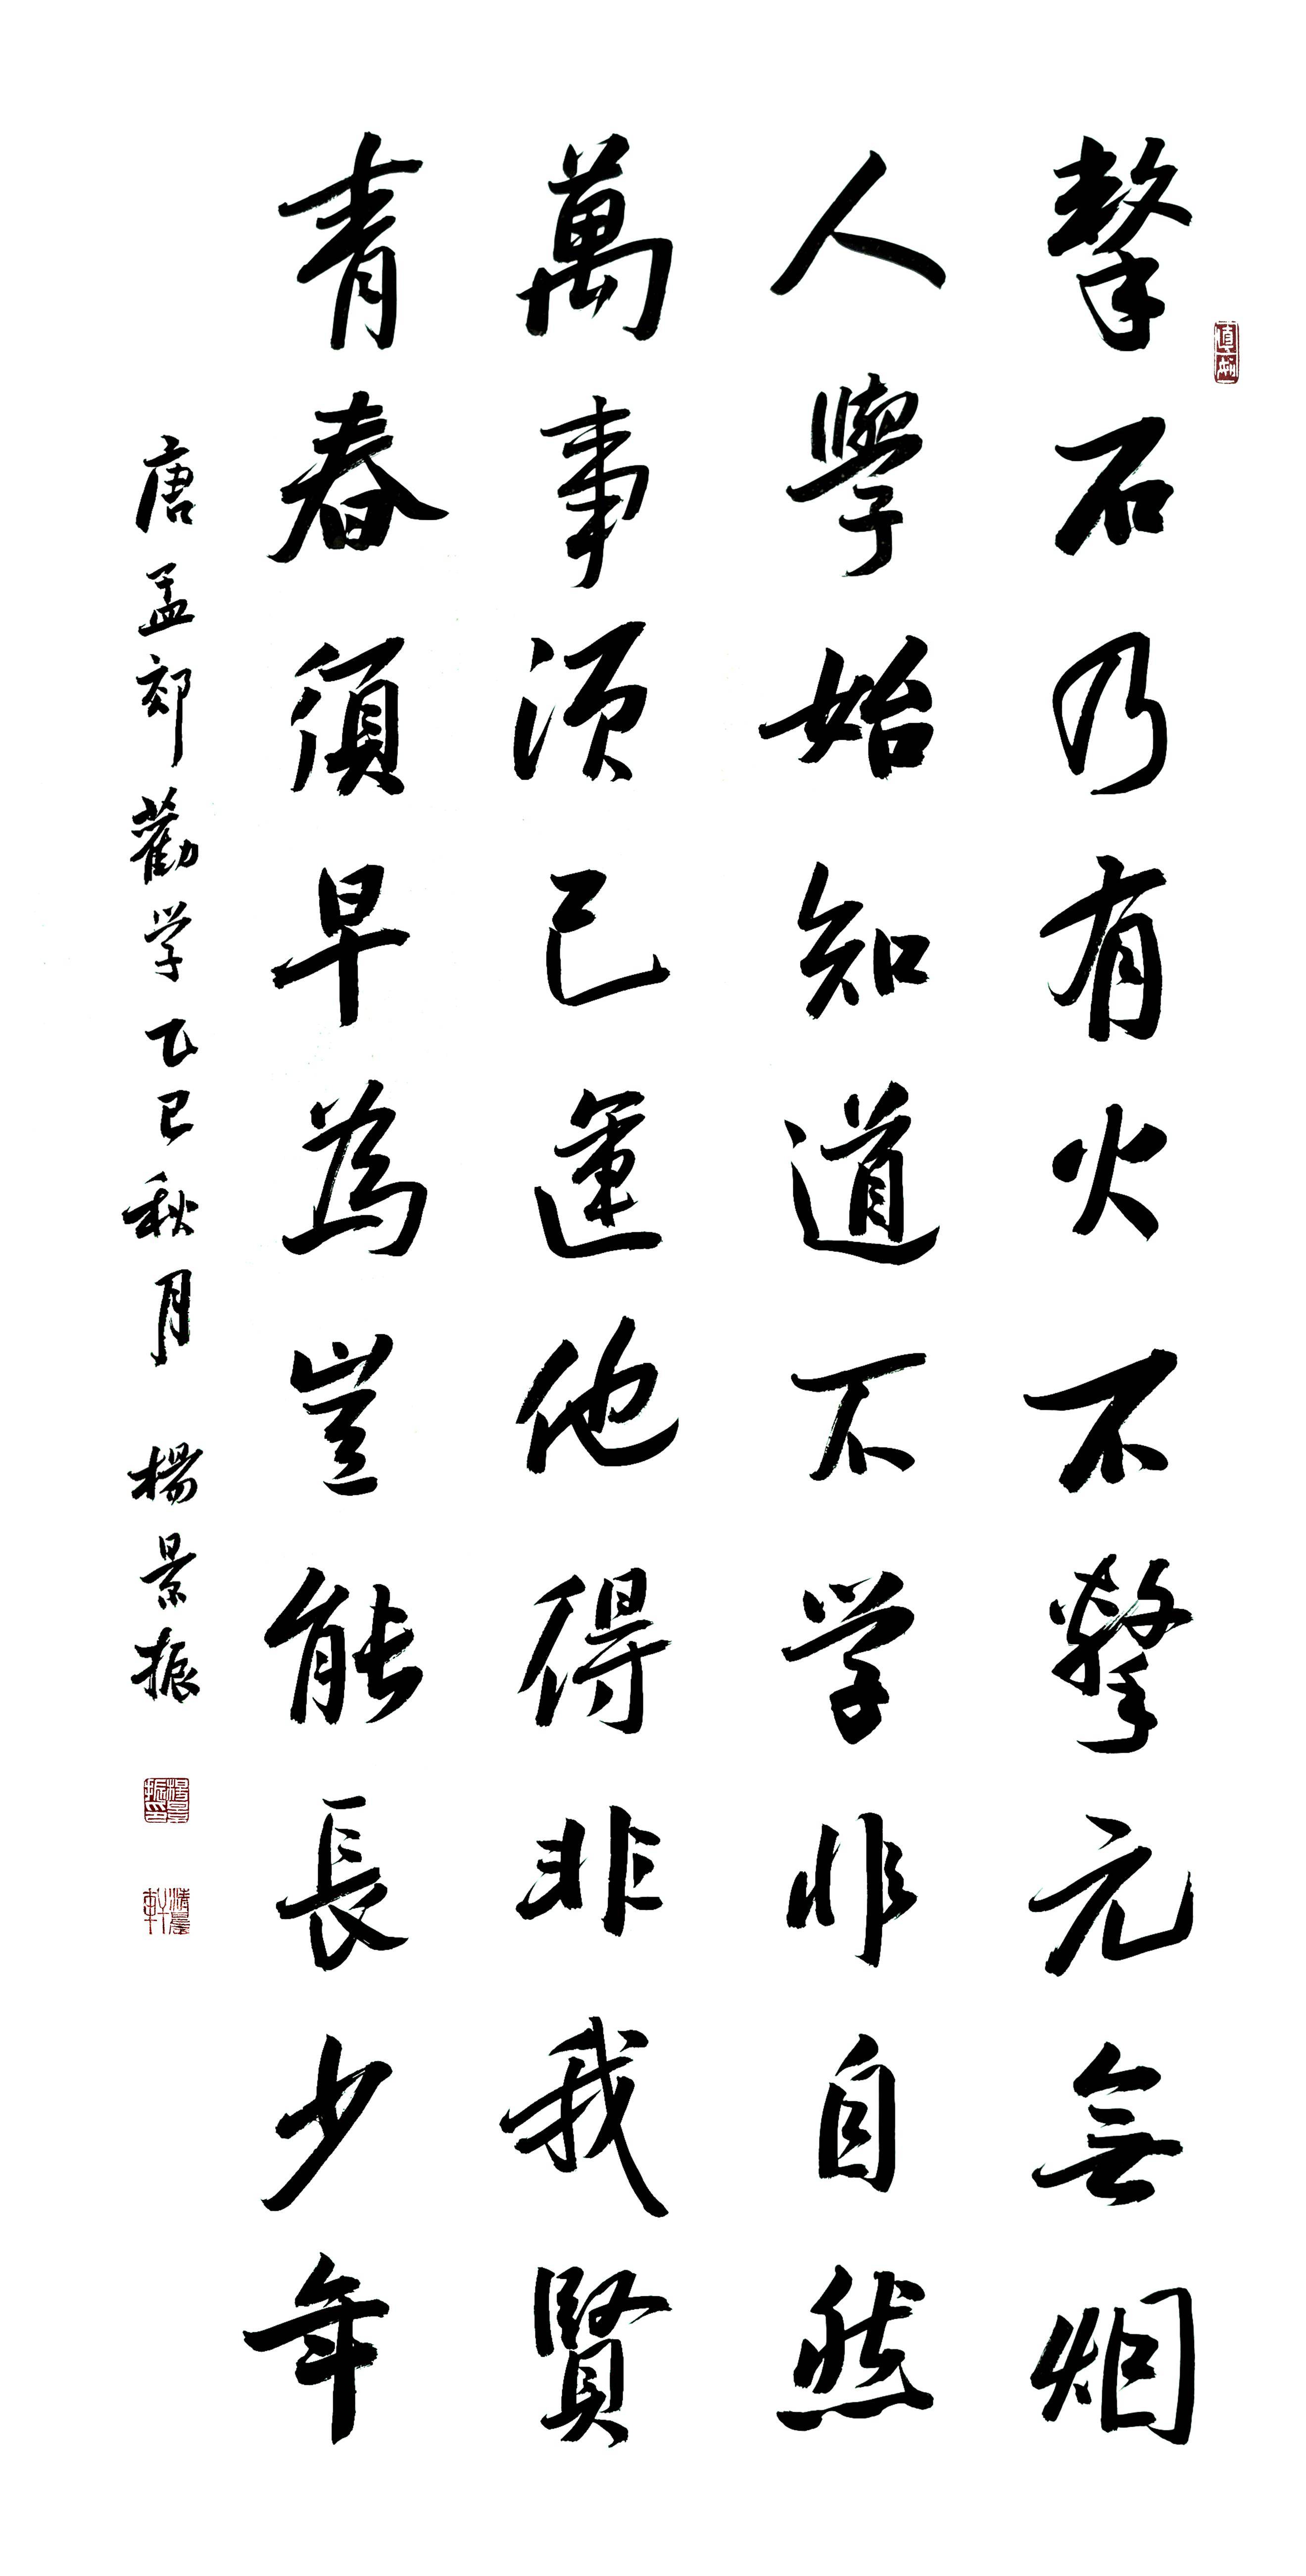 擊石乃有火不擊元無烟
人學始知道不学非自然
萬事須己運他得非我賢
青春須早為豈能長少年
唐孟郊勸学乙巳秋月 楊景振
楊景振印